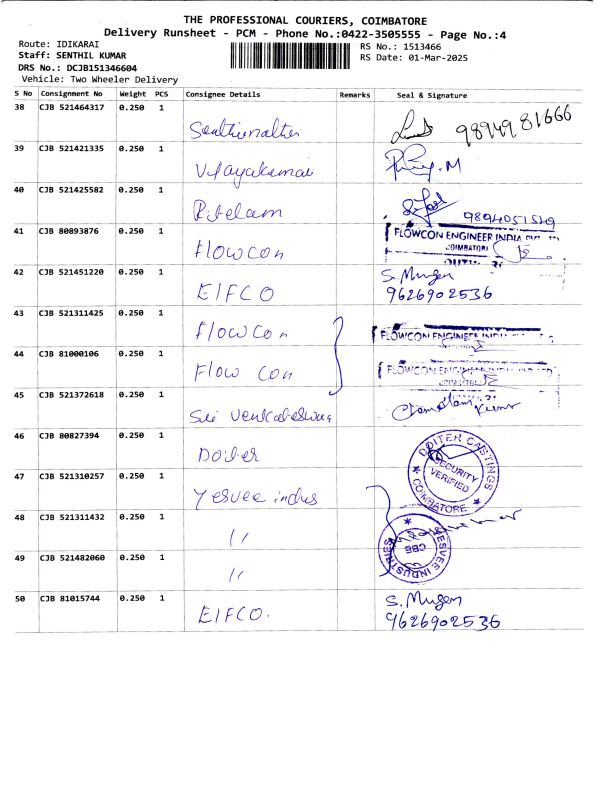 THE PROFESSIONAL COURIERS, COIMBATORE
Delivery Runsheet - PCM - Phone No.:0422-3505555 - Page No.:4
Route: IDIKARAI
RS No.: 1513466
Staff: SENTHIL KUMAR
RS Date: 01-Mar-2025
DRS No.: DCJB151346604
Vehicle: Two Wheeler Delivery
S No Consignment No Weight PCS Consignee Details Remarks Seal & Signature
38 CJB 521464317 0.250 1
98949 81666
39 CJB 521421335 0.250 1
Vijayakumar
40 CJB 521425582 0.250 1
9894051519
41 CJB 80893876 0.250 1 FLOWCON ENGINEER INDIA PVT. LTD
Flowcon COIMBATORE
42 CJB 521451220 0.250 1 S. Mugan
EIFCO 9626902536
43 CJB 521311425 0.250 1
Flow Con FLOWCON ENGINEER
44 CJB 81000106 0.250 1
Flow Con FLOWCON ENGINEER
45 CJB 521372618 0.250 1
Sri Venkateswara
46 CJB 80827394 0.250 1
Doiter DOITER CASTINGS SECURITY VERIFIED COIMBATORE
47 CJB 521310257 0.250 1
Yesvee indus
48 CJB 521311432 0.250 1
" YESVEE INDUSTRIES CBE
49 CJB 521482060 0.250 1
"
50 CJB 81015744 0.250 1 S. Mugan
EIFCO. 9626902536